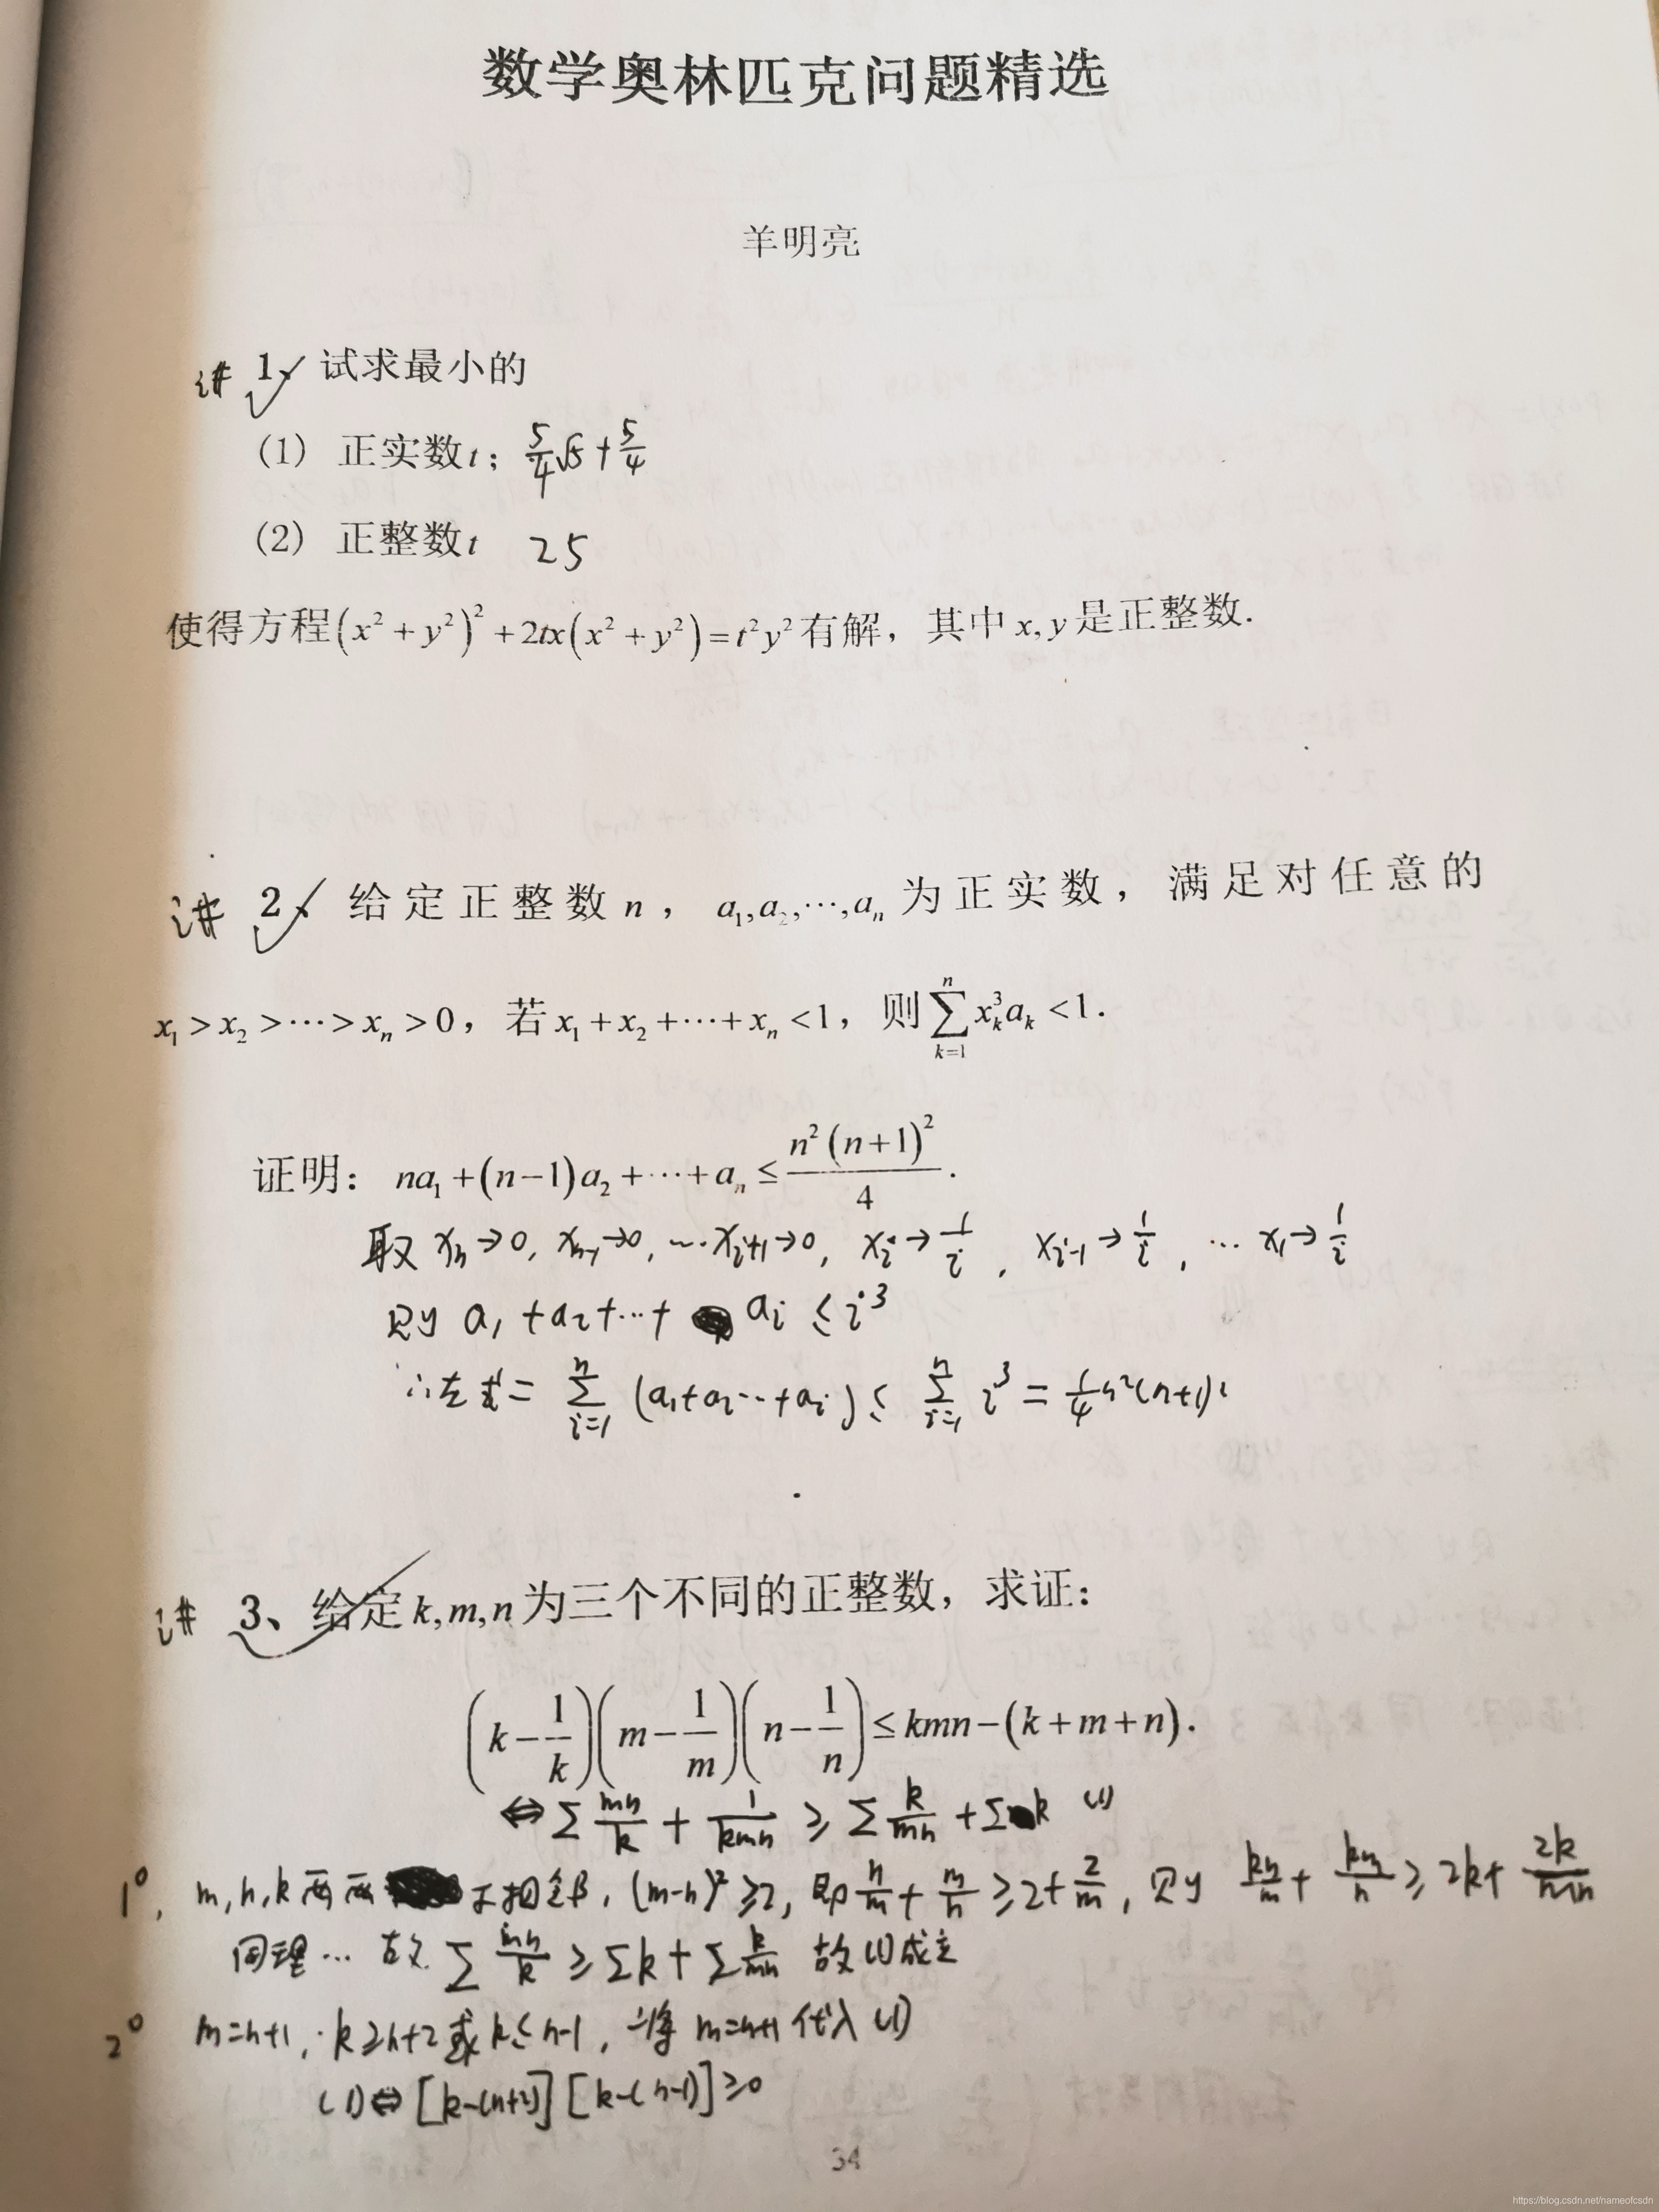 数学奥林匹克问题精选
羊明亮
讲 1、试求最小的
(1) 正实数t; 5/4√5+5/4
(2) 正整数t 25
使得方程(x²+y²)²+2tx(x²+y²)=t²y²有解，其中x,y是正整数.
讲 2、给定正整数n，a₁,a₂,⋯,aₙ为正实数，满足对任意的
x₁>x₂>⋯>xₙ>0，若x₁+x₂+⋯+xₙ<1，则∑ₖ₌₁ⁿ xₖ³aₖ<1.
证明：na₁+(n-1)a₂+⋯+aₙ≤n²(n+1)²/4.
取 xₙ→0, xₙ₋₁→0, ⋯xᵢ₊₁→0, xᵢ→1/i, xᵢ₋₁→1/i, ⋯ x₁→1/i
则 a₁+a₂+⋯+aᵢ≤i³
∴左式=∑ᵢ₌₁ⁿ(a₁+a₂⋯+aᵢ)≤∑ᵢ₌₁ⁿ i³=1/4n²(n+1)²
讲 3、给定k,m,n为三个不同的正整数，求证：
(k-1/k)(m-1/m)(n-1/n)≤kmn-(k+m+n).
⇔∑mn/k+1/kmn≥∑k/mn+∑k (1)
1°, m,n,k两两不相邻, (m-n)²≥2, 即n/m+m/n≥2+2/mn, 则 kn/m+km/n≥2k+2k/mn
同理⋯ 故∑mn/k≥∑k+∑k/mn 故(1)成立
2° m=n+1, k≥n+2或k≤n-1, 将m=n+1代入(1)
(1)⇔[k-(n+2)][k-(n-1)]≥0
34
https://blog.csdn.net/nameofcsdn